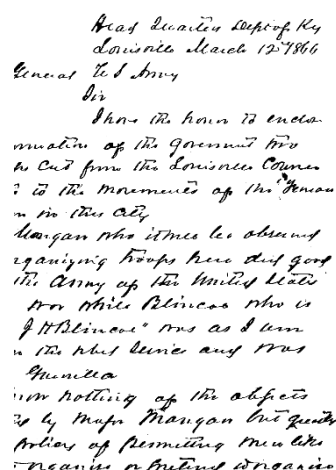 Head Quarters Dept of Ky
Louisville March 12th 1866
General U S Army
Sir
I have the honor to enclose
of the Government two
cut from the Louisville Courier
to the movements of the "Fenian
in this city
Mangan who it may be observed
organizing troops here did good
the Army of the United States
war while Blincoe who is
J H Blincoe" was as I am
the rebel service and was
Guerilla
know nothing of the objects
by Major Mangan but
policy of permitting men like
organize or pretend to organize